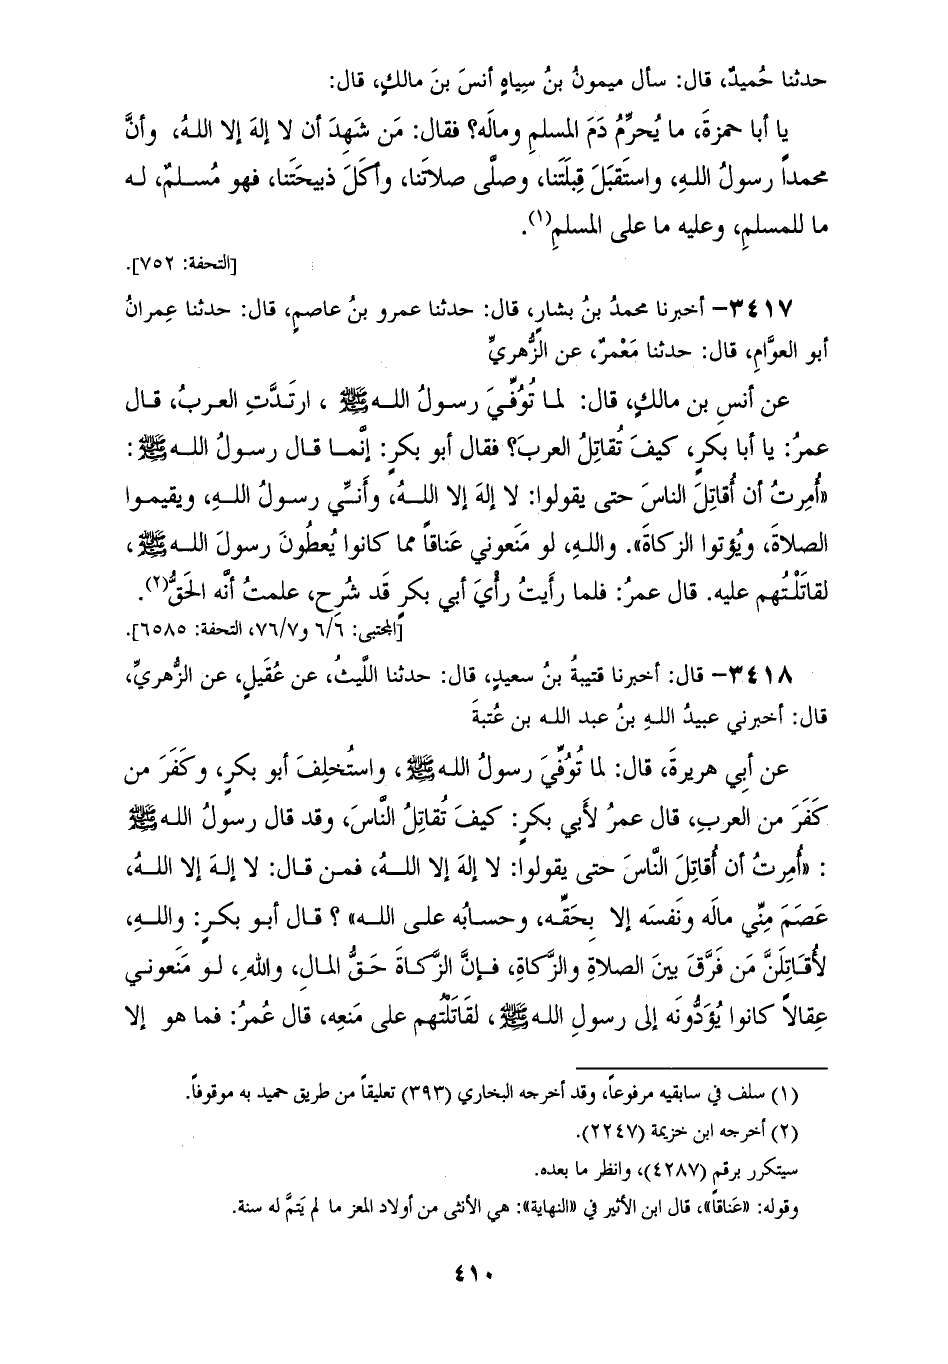 حدثنا حُميدٌ، قال: سأل ميمونُ بنُ سِياهٍ أنسَ بنَ مالكٍ، قال:
يا أبا حمزةَ، ما يُحرِّمُ دَمَ المسلمِ ومالَه؟ فقال: مَن شَهِدَ أن لا إلهَ إلا اللهُ، وأنَّ
محمداً رسولُ اللهِ، واستَقبَلَ قِبلَتَنا، وصلَّى صلاتَنا، وأكَلَ ذبيحَتَنا، فهو مُسلمٌ، له
ما للمسلمِ، وعليه ما على المسلمِ(١).
[التحفة: ٧٥٢].
٣٤١٧- أخبرنا محمدُ بنُ بشارٍ، قال: حدثنا عمرو بنُ عاصمٍ، قال: حدثنا عِمرانُ
أبو العوَّامِ، قال: حدثنا مَعْمرٌ، عن الزُّهريِّ
عن أنسِ بن مالكٍ، قال: لما تُوُفِّيَ رسولُ اللهِ ﷺ ، ارتَدَّتِ العربُ، قال
عمرُ: يا أبا بكرٍ، كيفَ تُقاتِلُ العربَ؟ فقال أبو بكرٍ: إنَّما قال رسولُ اللهِ ﷺ :
«أُمِرتُ أن أُقاتِلَ الناسَ حتى يقولوا: لا إلهَ إلا اللهُ، وأَنِّي رسولُ اللهِ، ويقيموا
الصلاةَ، ويُؤتوا الزكاةَ». واللهِ، لو مَنَعوني عَناقاً مما كانوا يُعطُونَ رسولَ اللهِ ﷺ ،
لقاتَلْتُهم عليه. قال عمرُ: فلما رأَيتُ رأْيَ أبي بكرٍ قَد شُرِح، علمتُ أنَّه الحَقُّ(٢).
[المجتبى: ٦/٦ و٧٦/٧، التحفة: ٦٥٨٥].
٣٤١٨- قال: أخبرنا قتيبةُ بنُ سعيدٍ، قال: حدثنا اللَّيثُ، عن عُقَيلٍ، عن الزُّهريِّ،
قال: أخبرني عبيدُ اللهِ بنُ عبد الله بن عُتبةَ
عن أبي هريرةَ، قال: لما تُوُفِّيَ رسولُ اللهِ ﷺ ، واستُخلِفَ أبو بكرٍ، وكَفَرَ من
كَفَرَ من العربِ، قال عمرُ لأَبي بكرٍ: كيفَ تُقاتِلُ النَّاسَ، وقد قال رسولُ اللهِ ﷺ
: «أُمِرتُ أن أُقاتِلَ النَّاسَ حتى يقولوا: لا إلهَ إلا اللهُ، فمن قال: لا إلهَ إلا اللهُ،
عَصَمَ مِنِّي مالَه ونَفسَه إلا بِحَقِّه، وحسابُه على الله» ؟ قال أبو بكرٍ: واللهِ،
لأُقاتِلَنَّ مَن فَرَّقَ بينَ الصلاةِ والزَّكاةِ، فإنَّ الزَّكاةَ حَقُّ المالِ، واللهِ، لو مَنَعوني
عِقالاً كانوا يُؤَدُّونَه إلى رسولِ اللهِ ﷺ ، لقَاتَلْتُهم على مَنعِه، قال عُمرُ: فما هو إلا
(١) سلف في سابقيه مرفوعاً، وقد أخرجه البخاري (٣٩٣) تعليقاً من طريق حميد به موقوفاً.
(٢) أخرجه ابن خزيمة (٢٢٤٧).
سيتكرر برقم (٤٢٨٧)، وانظر ما بعده.
وقوله: «عَناقاً»، قال ابن الأثير في «النهاية»: هي الأنثى من أولاد المعز ما لم يَتمَّ له سنة.
٤١٠